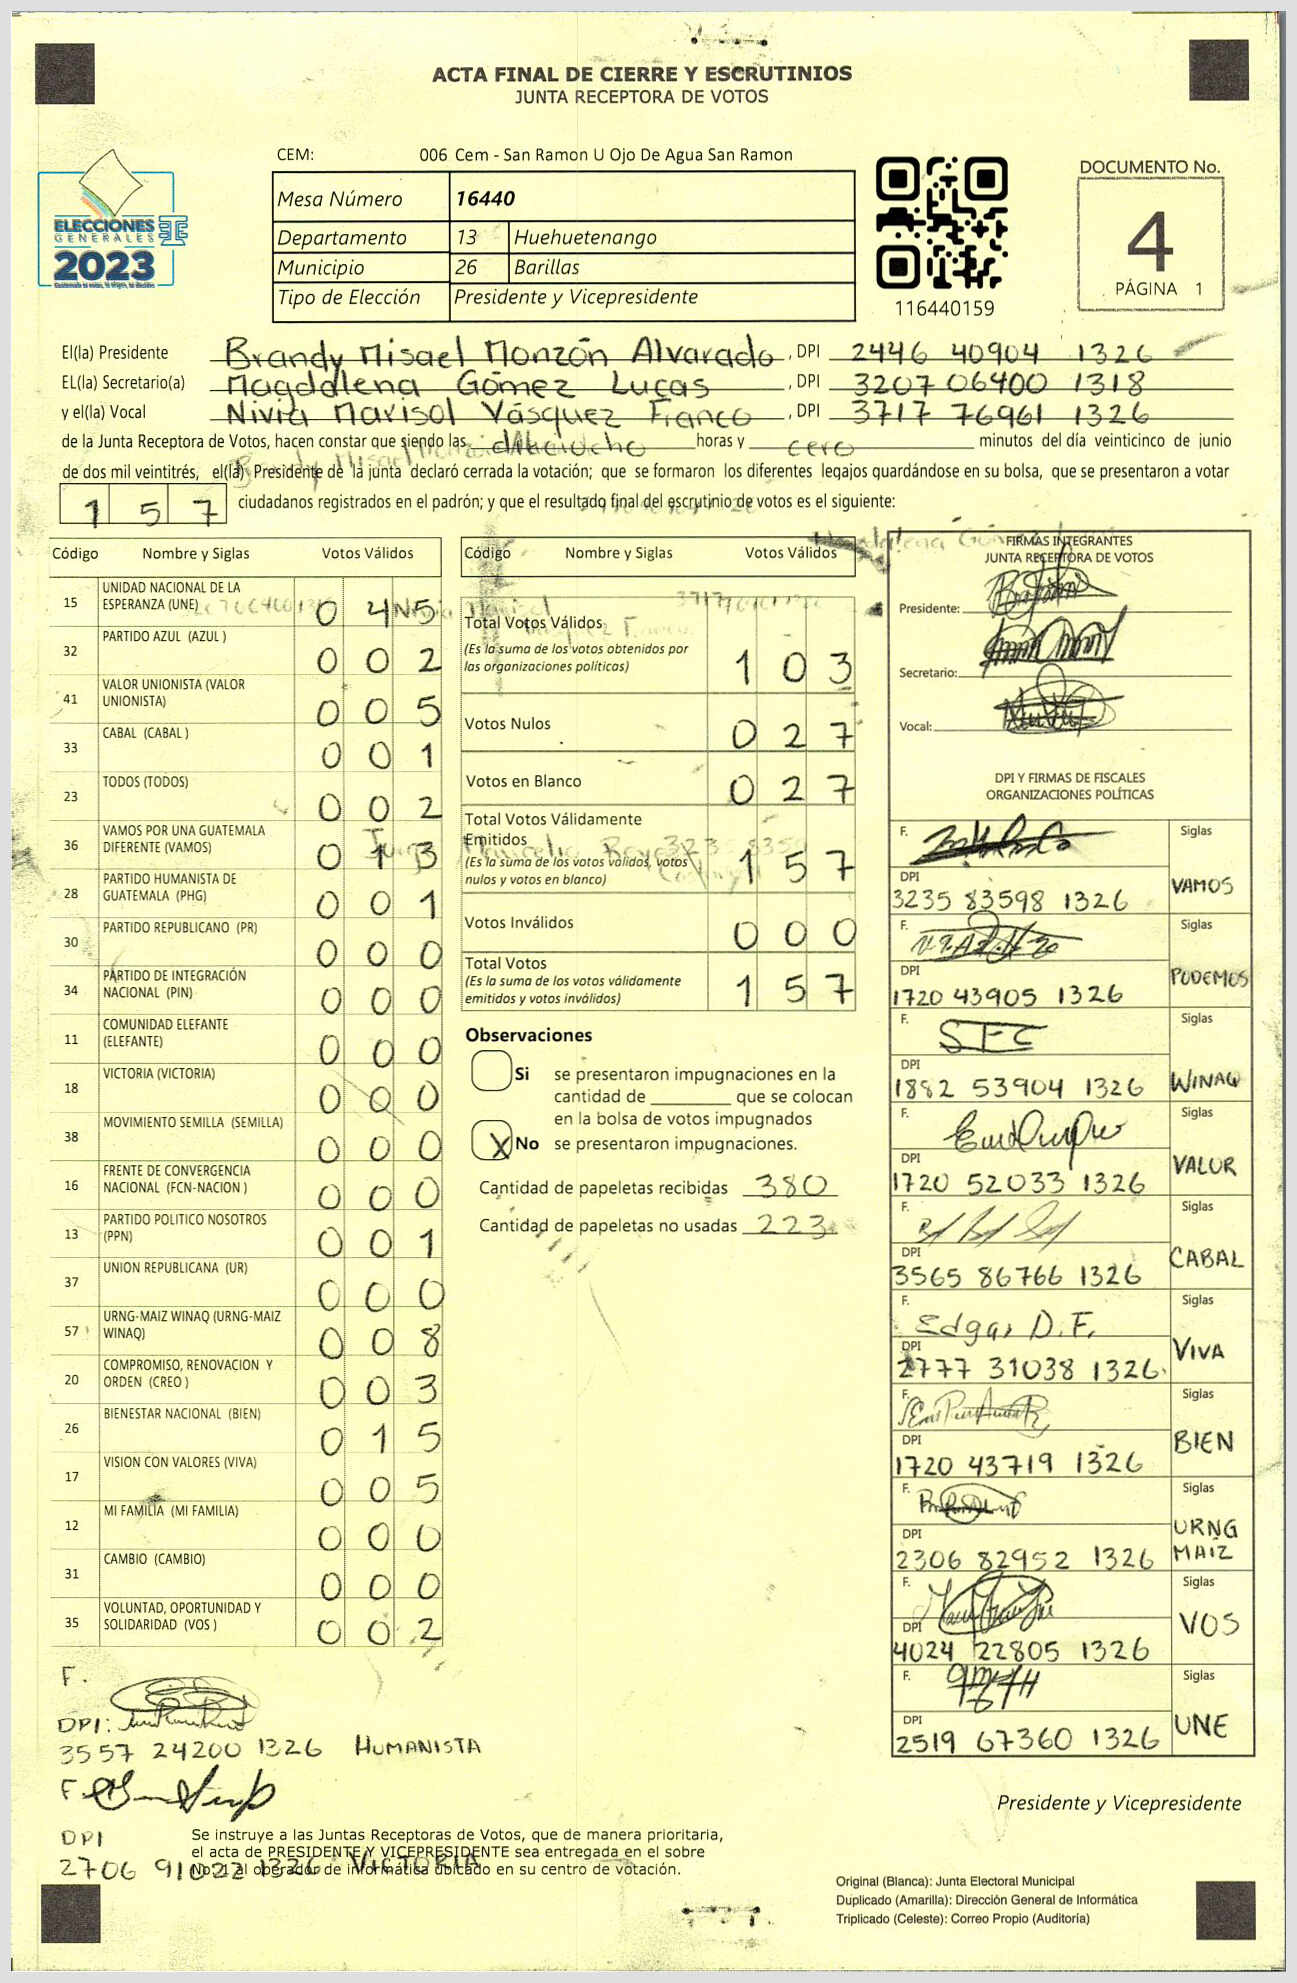 ACTA FINAL DE CIERRE Y ESCRUTINIOS
JUNTA RECEPTORA DE VOTOS
CEM: 006 Cem - San Ramon U Ojo De Agua San Ramon
Mesa Número 16440
Departamento 13 Huehuetenango
Municipio 26 Barillas
Tipo de Elección Presidente y Vicepresidente
ELECCIONES
GENERALES
2023
116440159
DOCUMENTO No.
4
PÁGINA 1
El(la) Presidente Brandy Misael Monzón Alvarado, DPI 2446 40904 1326
EL(la) Secretario(a) Magdalena Gómez Lucas, DPI 3207 06400 1318
y el(la) Vocal Nivia Marisol Vásquez Franco, DPI 3717 76961 1326
de la Junta Receptora de Votos, hacen constar que siendo las dieciocho horas y cero minutos del día veinticinco de junio
de dos mil veintitrés, el(la) Presidente de la junta declaró cerrada la votación; que se formaron los diferentes legajos quardándose en su bolsa, que se presentaron a votar
157 ciudadanos registrados en el padrón; y que el resultado final del escrutinio de votos es el siguiente:
Código Nombre y Siglas Votos Válidos
15 UNIDAD NACIONAL DE LA ESPERANZA (UNE) 0 4 5
32 PARTIDO AZUL (AZUL ) 0 0 2
41 VALOR UNIONISTA (VALOR UNIONISTA) 0 0 5
33 CABAL (CABAL ) 0 0 1
23 TODOS (TODOS) 0 0 2
36 VAMOS POR UNA GUATEMALA DIFERENTE (VAMOS) 0 1 3
28 PARTIDO HUMANISTA DE GUATEMALA (PHG) 0 0 1
30 PARTIDO REPUBLICANO (PR) 0 0 0
34 PARTIDO DE INTEGRACIÓN NACIONAL (PIN) 0 0 0
11 COMUNIDAD ELEFANTE (ELEFANTE) 0 0 0
18 VICTORIA (VICTORIA) 0 0 0
38 MOVIMIENTO SEMILLA (SEMILLA) 0 0 0
16 FRENTE DE CONVERGENCIA NACIONAL (FCN-NACION ) 0 0 0
13 PARTIDO POLITICO NOSOTROS (PPN) 0 0 1
37 UNION REPUBLICANA (UR) 0 0 0
57 URNG-MAIZ WINAQ (URNG-MAIZ WINAQ) 0 0 8
20 COMPROMISO, RENOVACION Y ORDEN (CREO ) 0 0 3
26 BIENESTAR NACIONAL (BIEN) 0 1 5
17 VISION CON VALORES (VIVA) 0 0 5
12 MI FAMILIA (MI FAMILIA) 0 0 0
31 CAMBIO (CAMBIO) 0 0 0
35 VOLUNTAD, OPORTUNIDAD Y SOLIDARIDAD (VOS ) 0 0 2
Código Nombre y Siglas Votos Válidos
Total Votos Válidos 1 0 3
(Es la suma de los votos obtenidos por
las organizaciones políticas)
Votos Nulos 0 2 7
Votos en Blanco 0 2 7
Total Votos Válidamente
Emitidos 1 5 7
(Es la suma de los votos válidos, votos
nulos y votos en blanco)
Votos Inválidos 0 0 0
Total Votos 1 5 7
(Es la suma de los votos válidamente
emitidos y votos inválidos)
Observaciones
Si se presentaron impugnaciones en la
cantidad de ________ que se colocan
en la bolsa de votos impugnados
X No se presentaron impugnaciones.
Cantidad de papeletas recibidas 380
Cantidad de papeletas no usadas 223
FIRMAS INTEGRANTES
JUNTA RECEPTORA DE VOTOS
Presidente:
Secretario:
Vocal:
DPI Y FIRMAS DE FISCALES
ORGANIZACIONES POLÍTICAS
F. Siglas
DPI
3235 83598 1326 VAMOS
F. Siglas
DPI
1720 43905 1326 PODEMOS
F. Siglas
DPI
1882 53904 1326 WINAQ
F. Siglas
DPI
1720 52033 1326 VALOR
F. Siglas
DPI
3565 86766 1326 CABAL
F. Edgar D.F. Siglas
DPI
2777 31038 1326 VIVA
F. Siglas
DPI
1720 43719 1326 BIEN
F. Siglas
DPI
2306 82952 1326 URNG MAIZ
F. Siglas
DPI
4024 22805 1326 VOS
F. Siglas
DPI
2519 67360 1326 UNE
F.
DPI:
3557 24200 1326 HUMANISTA
F.
DPI
2706 91022 1326 VICTORIA
Se instruye a las Juntas Receptoras de Votos, que de manera prioritaria,
el acta de PRESIDENTE Y VICEPRESIDENTE sea entregada en el sobre
No. 1 al operador de informática ubicado en su centro de votación.
Presidente y Vicepresidente
Original (Blanca): Junta Electoral Municipal
Duplicado (Amarilla): Dirección General de Informática
Triplicado (Celeste): Correo Propio (Auditoría)